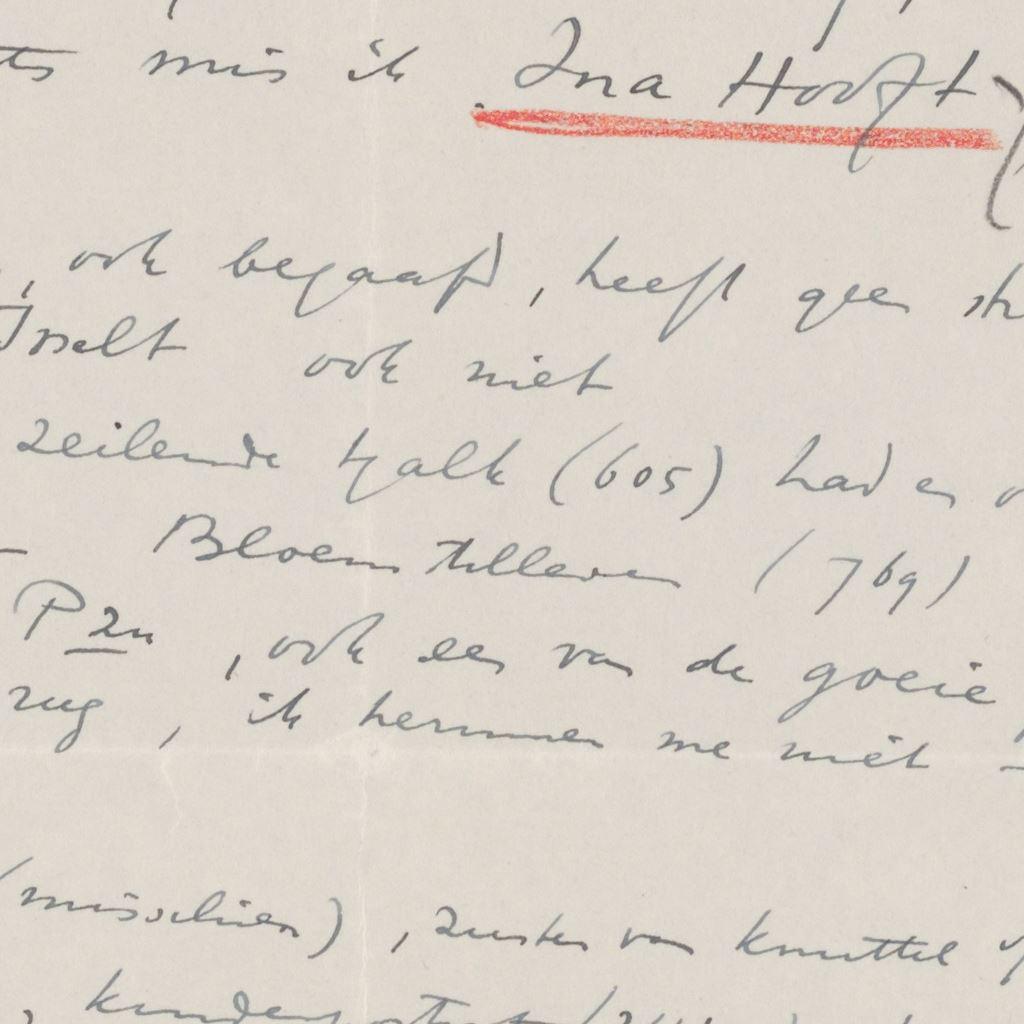 mis ik Ina Hooft
, ook begaafd, heeft geen
IJsselt ook niet
zeilende tjalk (605) had er
- Bloemstilleven (769)
P zn , ook een van de goeie
rug , ik herinner me niet
(misschien) , zuster van Knuttel
,